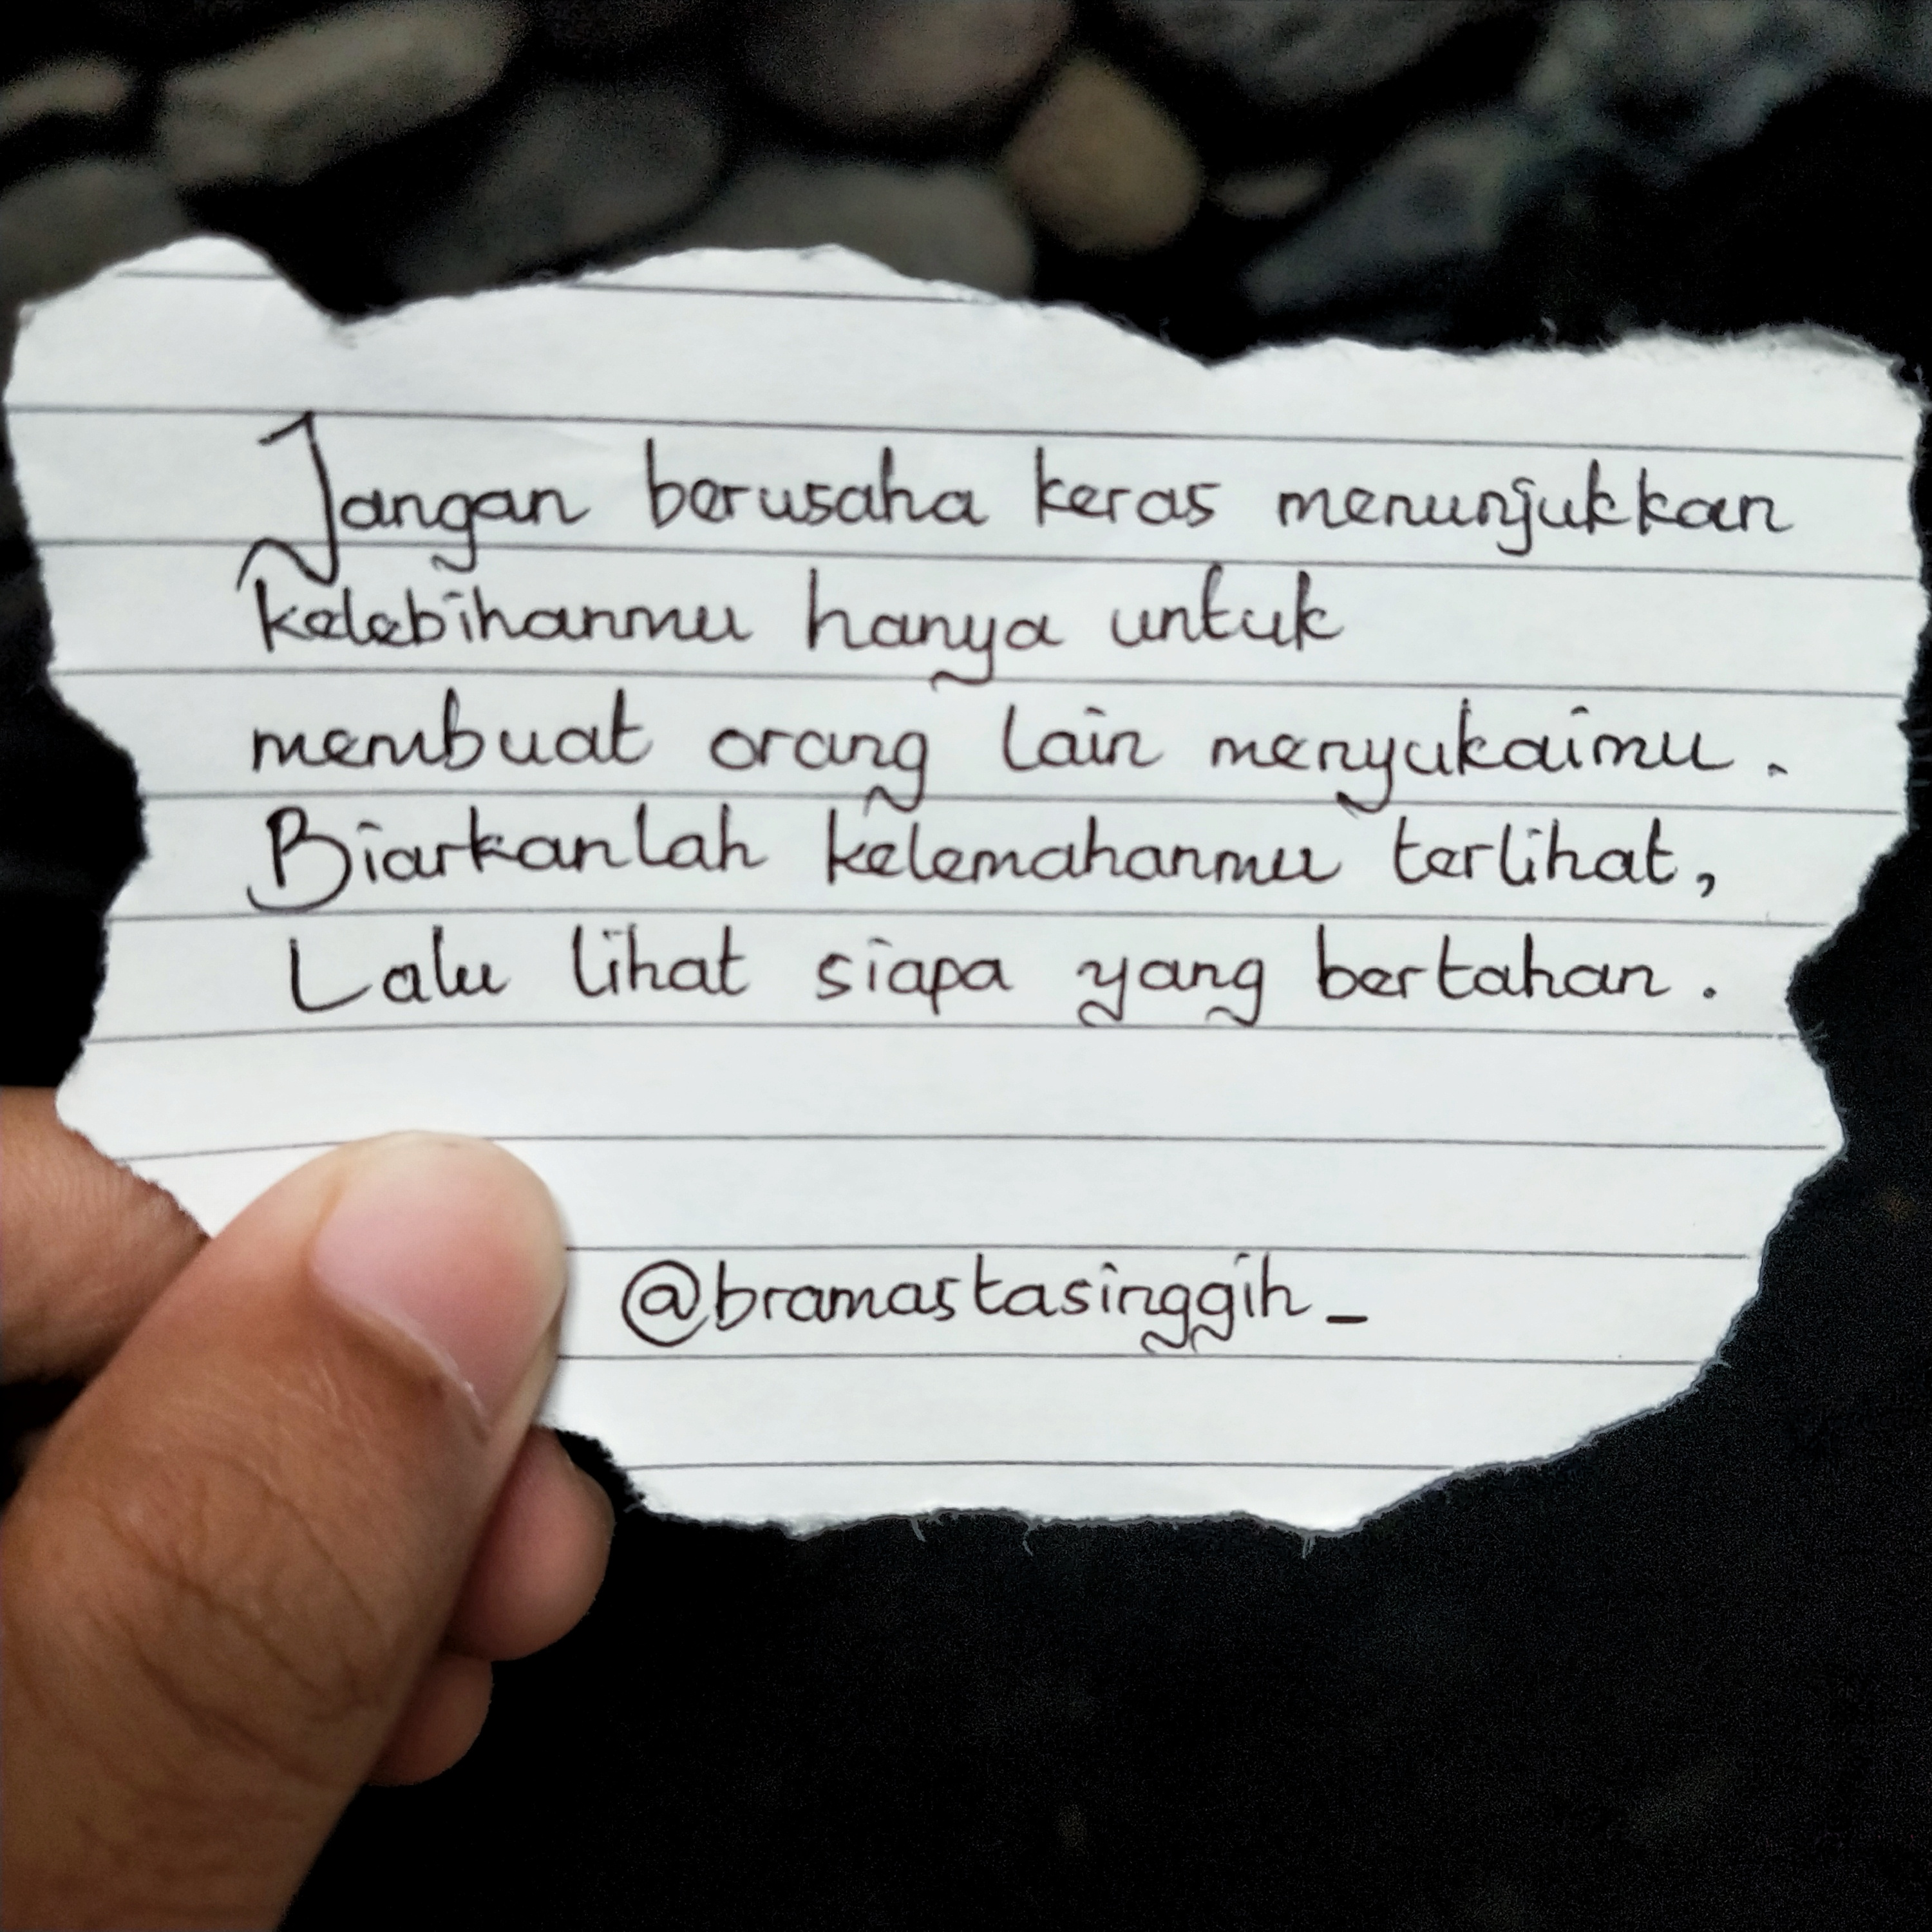 Jangan berusaha keras menunjukkan
kelebihanmu hanya untuk
membuat orang lain menyukaimu.
Biarkanlah kelemahanmu terlihat,
Lalu lihat siapa yang bertahan.
@bramastasinggih_